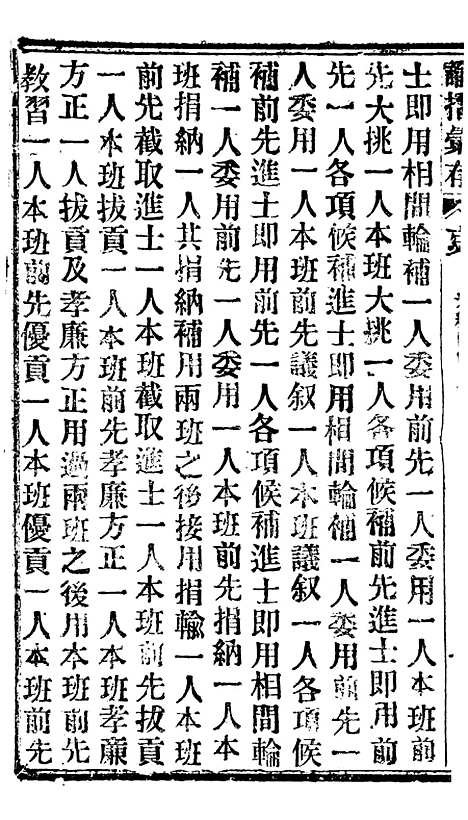 諭摺彙存
士即用相間輪補一人委用前先一人委用一人本班前
先大挑一人本班大挑一人各項候補前先進士即用前
先一人各項候補進士即用相間輪補一人委用前先一
人委用一人本班前先議叙一人本班議叙一人各項候
補前先進士即用前先一人各項候補進士即用相間輪
補一人委用前先一人委用一人本班前先捐納一人本
班捐納一人其捐納補用兩班之後接用捐輸一人本班
前先截取進士一人本班截取進士一人本班前先拔貢
一人本班拔貢一人本班前先孝廉方正一人本班孝廉
方正一人拔貢及孝廉方正用過兩班之後用本班前先
教習一人本班前先優貢一人本班優貢一人本班前先